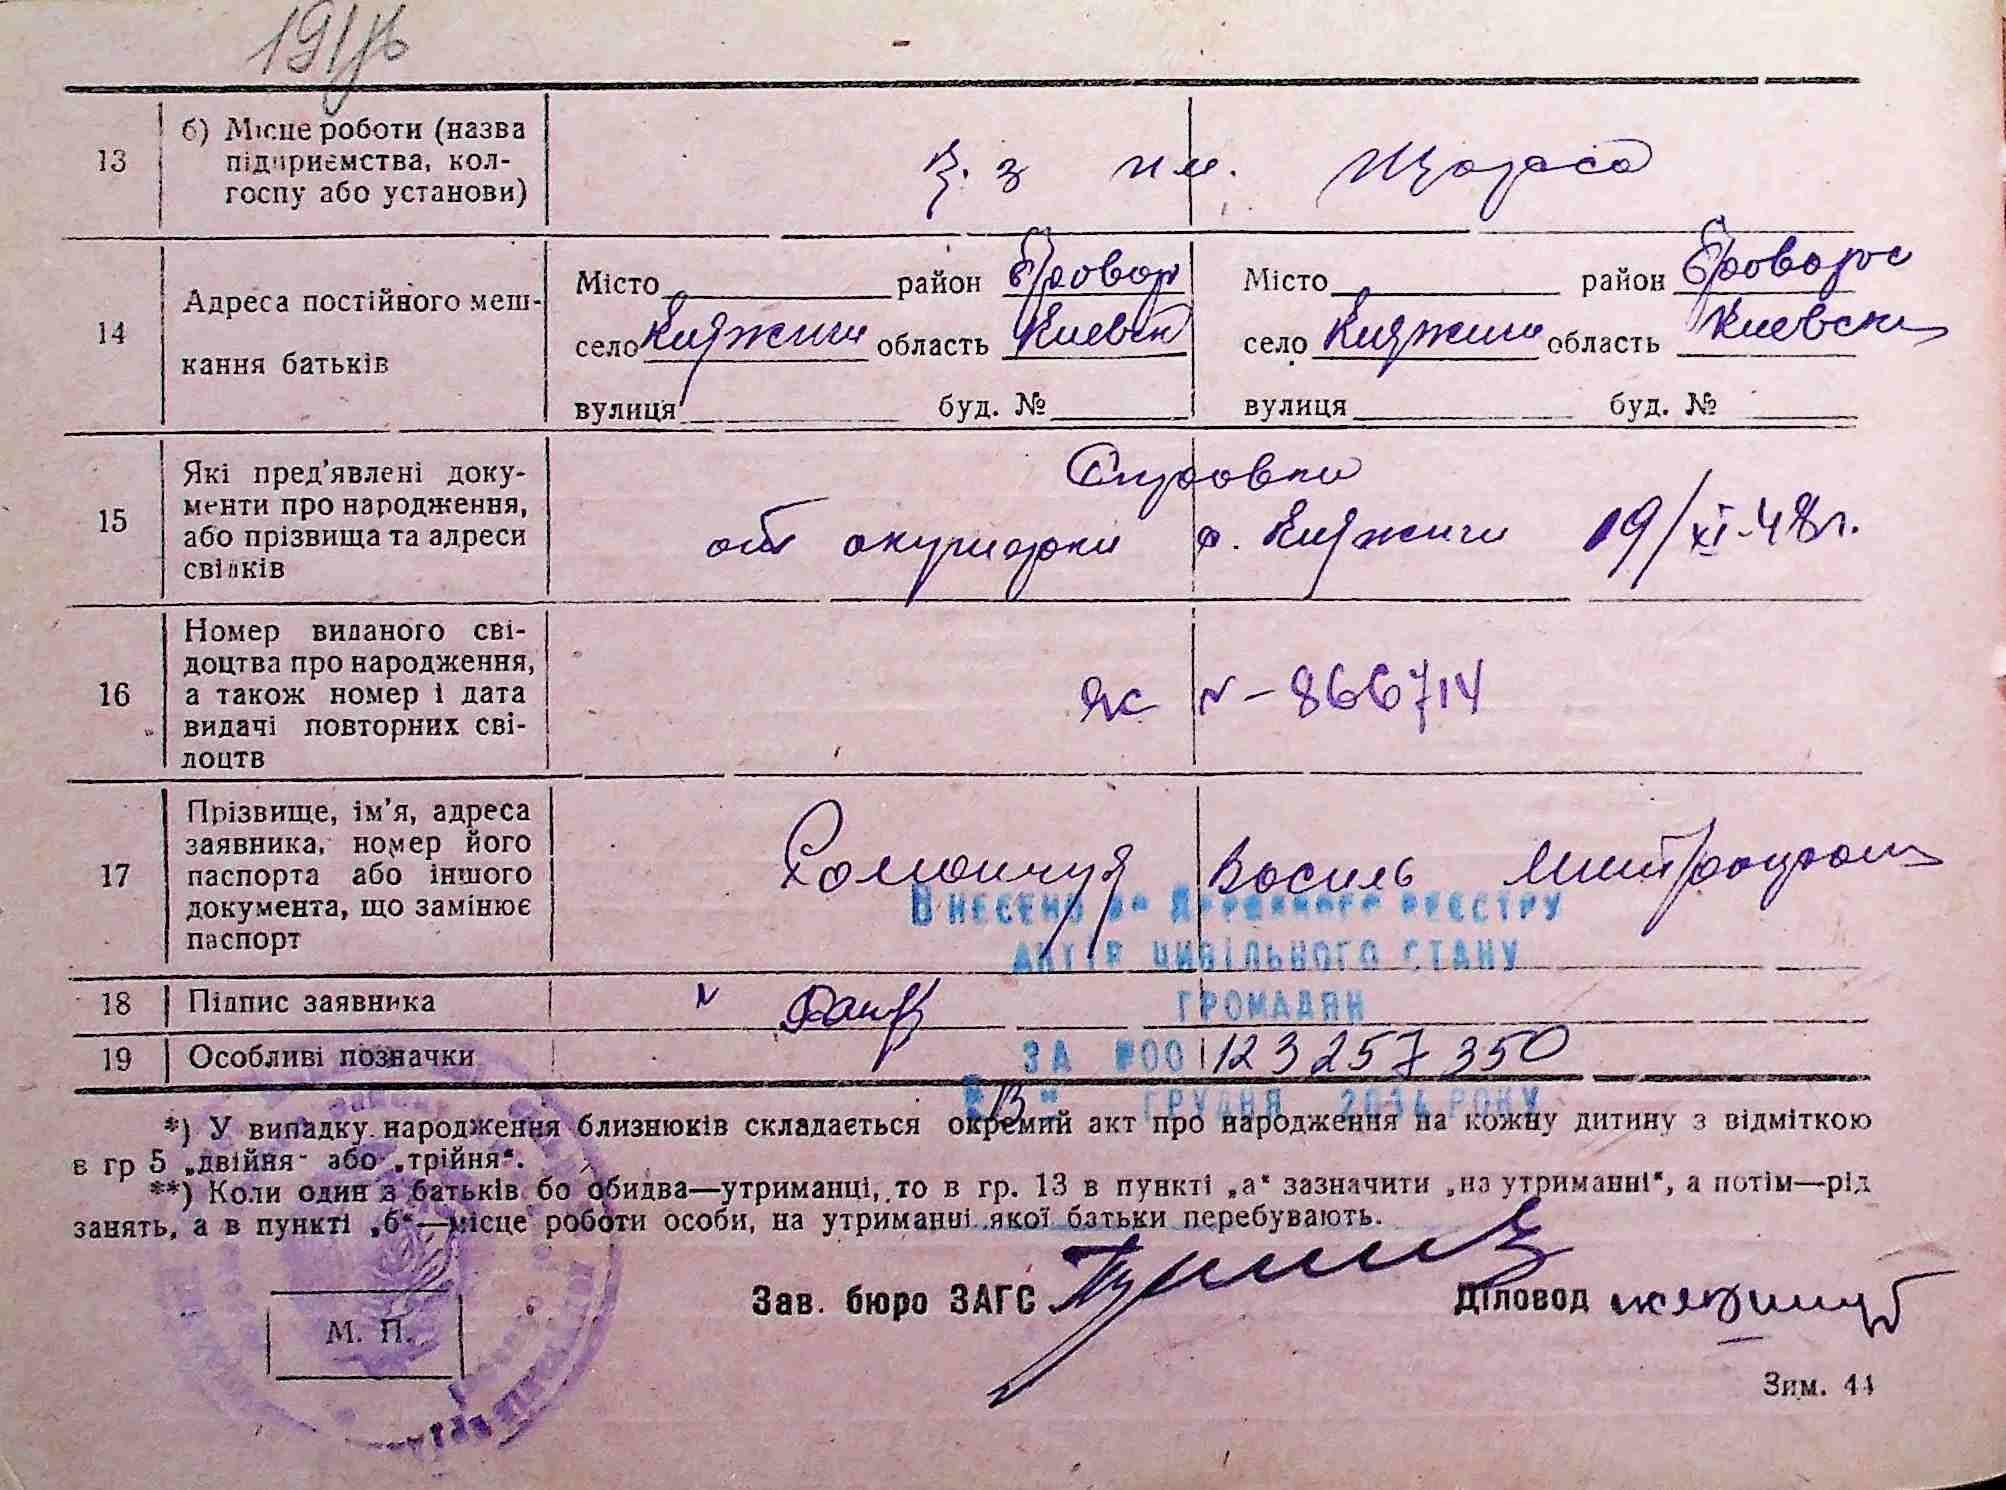 13
б) Місце роботи (назва
підприємства, кол-
госпу або установи)
к-з им. Щорса
14
Адреса постійного меш-
кання батьків
Місто район Бровар
село Княжичи область Киевск
вулиця буд. №
Місто район Броварс
село Княжичи область Киевск
вулиця буд. №
15
Які пред’явлені доку-
менти про народження,
або прізвища та адреси
свідків
Справка
от акушерки с. Княжичи 19/XI-48 г.
16
Номер виданого сві-
доцтва про народження,
а також номер і дата
видачі повторних сві-
доцтв
ЯС N-866714
17
Прізвище, ім’я, адреса
заявника, номер його
паспорта або іншого
документа, що замінює
паспорт
Василь Митрофан
Внесено до Державного реєстру
актів цивільного стану
громадян
18
Підпис заявника
19
Особливі позначки
за №00 123257350
грудня РОКУ
*) У випадку народження близнюків складається окремий акт про народження на кожну дитину з відміткою
в гр 5 „двійня“ або „трійня“.
**) Коли один з батьків бо обидва—утриманці, то в гр. 13 в пункті „а“ зазначити „на утриманні“, а потім—рід
занять, а в пункті „б“—місце роботи особи, на утриманні якої батьки перебувають.
Зав. бюро ЗАГС
Діловод
М. П.
Зим. 44